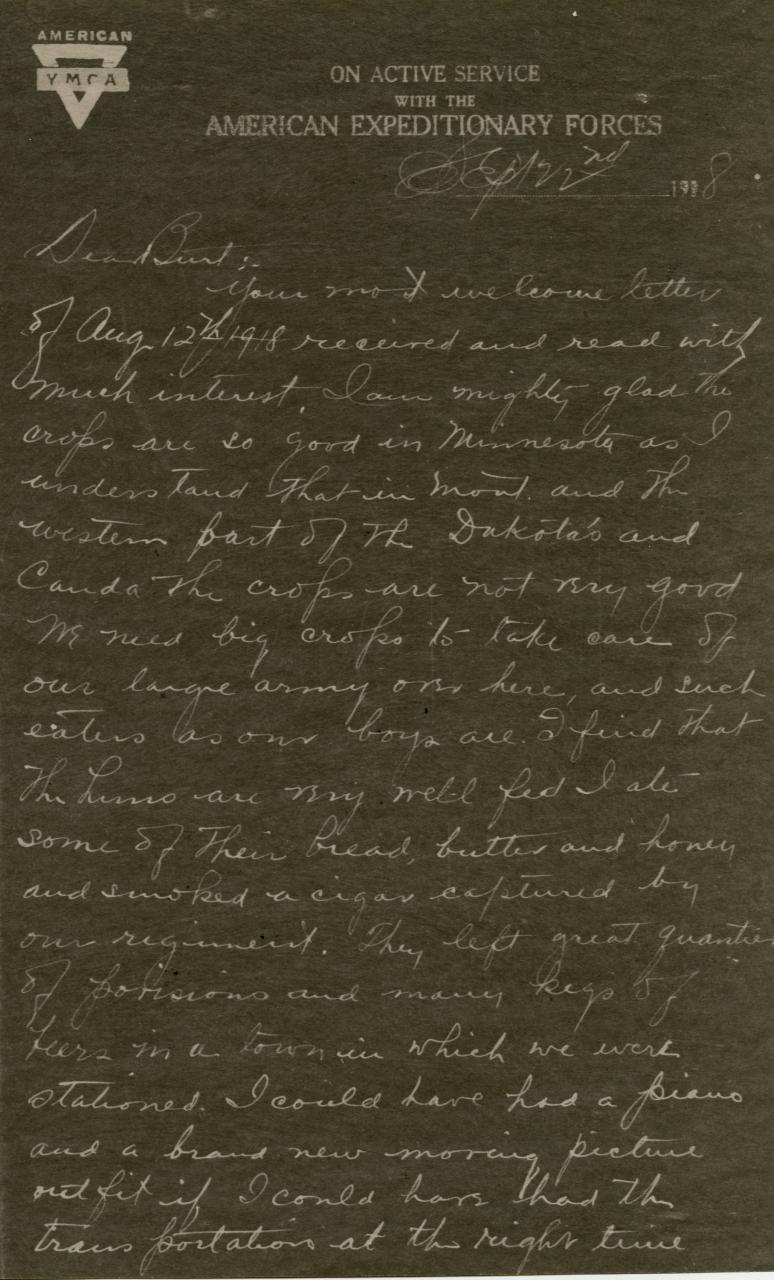 AMERICAN
YMCA
ON ACTIVE SERVICE
WITH THE
AMERICAN EXPEDITIONARY FORCES
Sept 22nd 1918
Dear Burt:-
Your most welcome letter
of Aug. 12th 1918 received and read with
much interest. I am mighty glad the
crops are so good in Minnesota as I
understand that in Mont. and the
western part of the Dakota's and
Canda the crops are not very good
We need big crops to take care of
our large army over here, and such
eaters as our boys are. I find that
the huns are very well fed I ate
some of their bread, butter and honey
and smoked a cigar captured by
our regiment. They left great quanties
of porisions and many kegs of
beers in a town in which we were
stationed. I could have had a piano
and a brand new moving picture
outfit if I could have had the
transportation at the right time